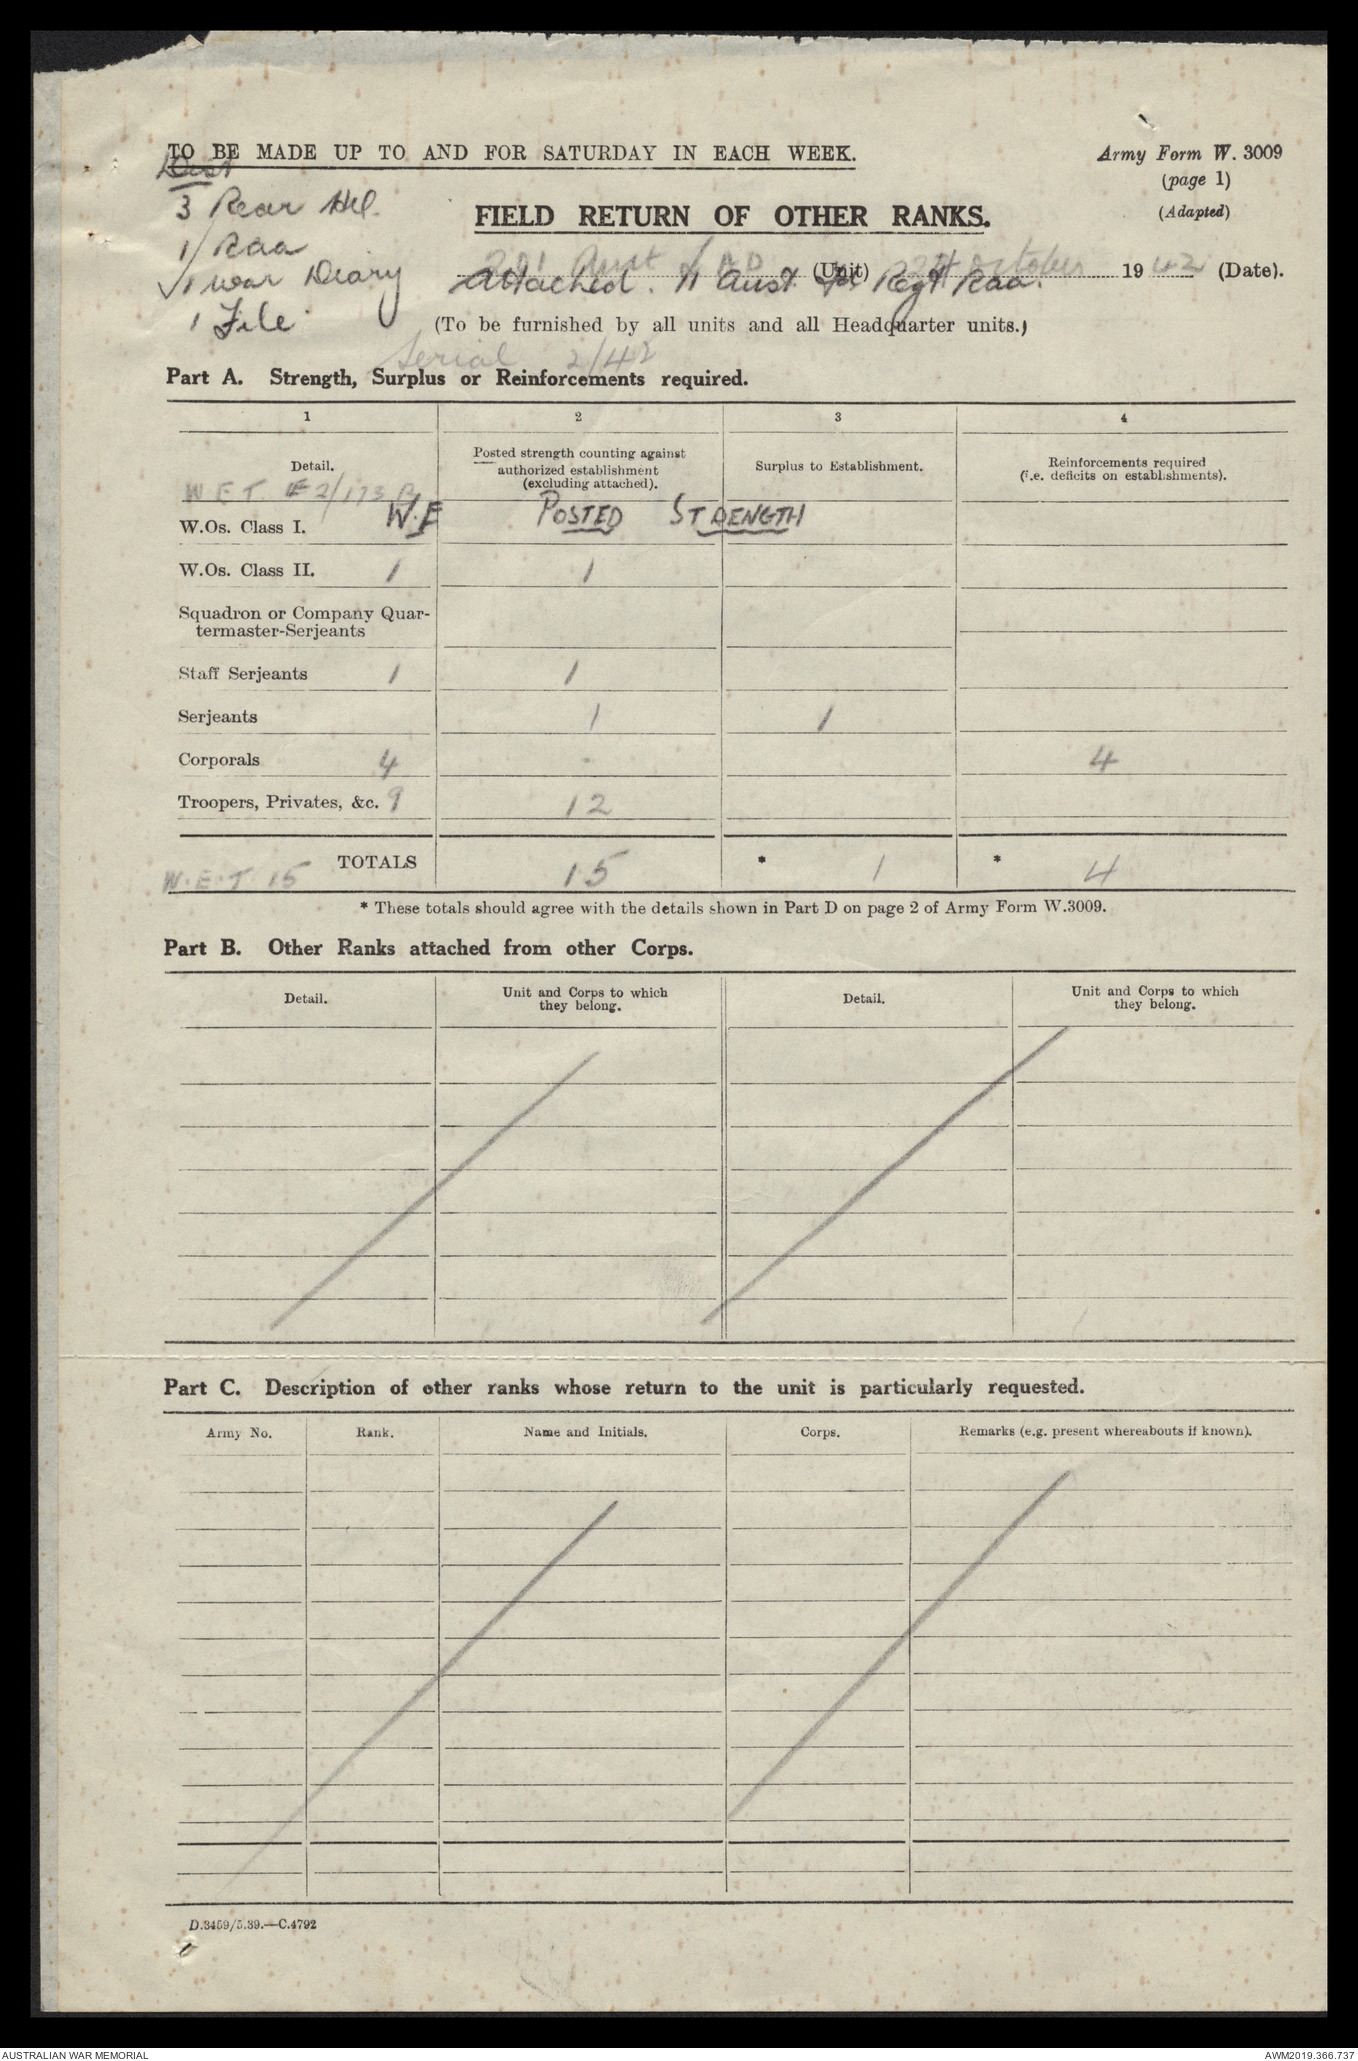 TO BE MADE UP TO AND FOR SATURDAY IN EACH WEEK.
Army Form W. 3009
(page 1)
(Adapted)
Dist
3 Rear Hd.
1 Raa
✓1 War Diary
1 File
FIELD RETURN OF OTHER RANKS.
201 Aust LAD (Unit) October 1942 (Date).
Attached. 11 Aust Fd Regt Raa.
(To be furnished by all units and all Headquarter units.)
Serial 2/42
Part A. Strength, Surplus or Reinforcements required.
1 2 3 4
Detail.
Posted strength counting against authorized establishment (excluding attached).
Surplus to Establishment.
Reinforcements required (i.e. deficits on establishments).
W E T F 2/173 B
W.Os. Class I. W.E POSTED STRENGTH
W.Os. Class II. 1 1
Squadron or Company Quar-
termaster-Serjeants
Staff Serjeants 1 1
Serjeants 1 1
Corporals 4 - 4
Troopers, Privates, &c. 9 12
W.E.T 15 TOTALS 15 * 1 * 4
* These totals should agree with the details shown in Part D on page 2 of Army Form W.3009.
Part B. Other Ranks attached from other Corps.
Detail. Unit and Corps to which they belong. Detail. Unit and Corps to which they belong.
Part C. Description of other ranks whose return to the unit is particularly requested.
Army No. Rank. Name and Initials. Corps. Remarks (e.g. present whereabouts if known).
D.3459/5.39.—C.4792
AUSTRALIAN WAR MEMORIAL
AWM2019.366.737